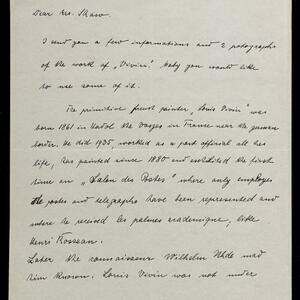 Dear Mrs. Shaw.
I send you a few informations and 2 potographs
of the work of "Vivin". Maby you would like
to use some of it.
The primitive french painter "Louis Vivin" was
born 1861 in Hadol the Vosges in France near the german
border. He did 1905, worked as a post official all hes
life, has painted since 1880 and exhibited the first
time an "Salon des Postes" where only employes
the postes and telegraphs have been represented and
where he received les palmes academique, like
Henri Rosseau.
Later the connaisseur Wilhelm Uhde mad
him known. Louis Vivin was not under